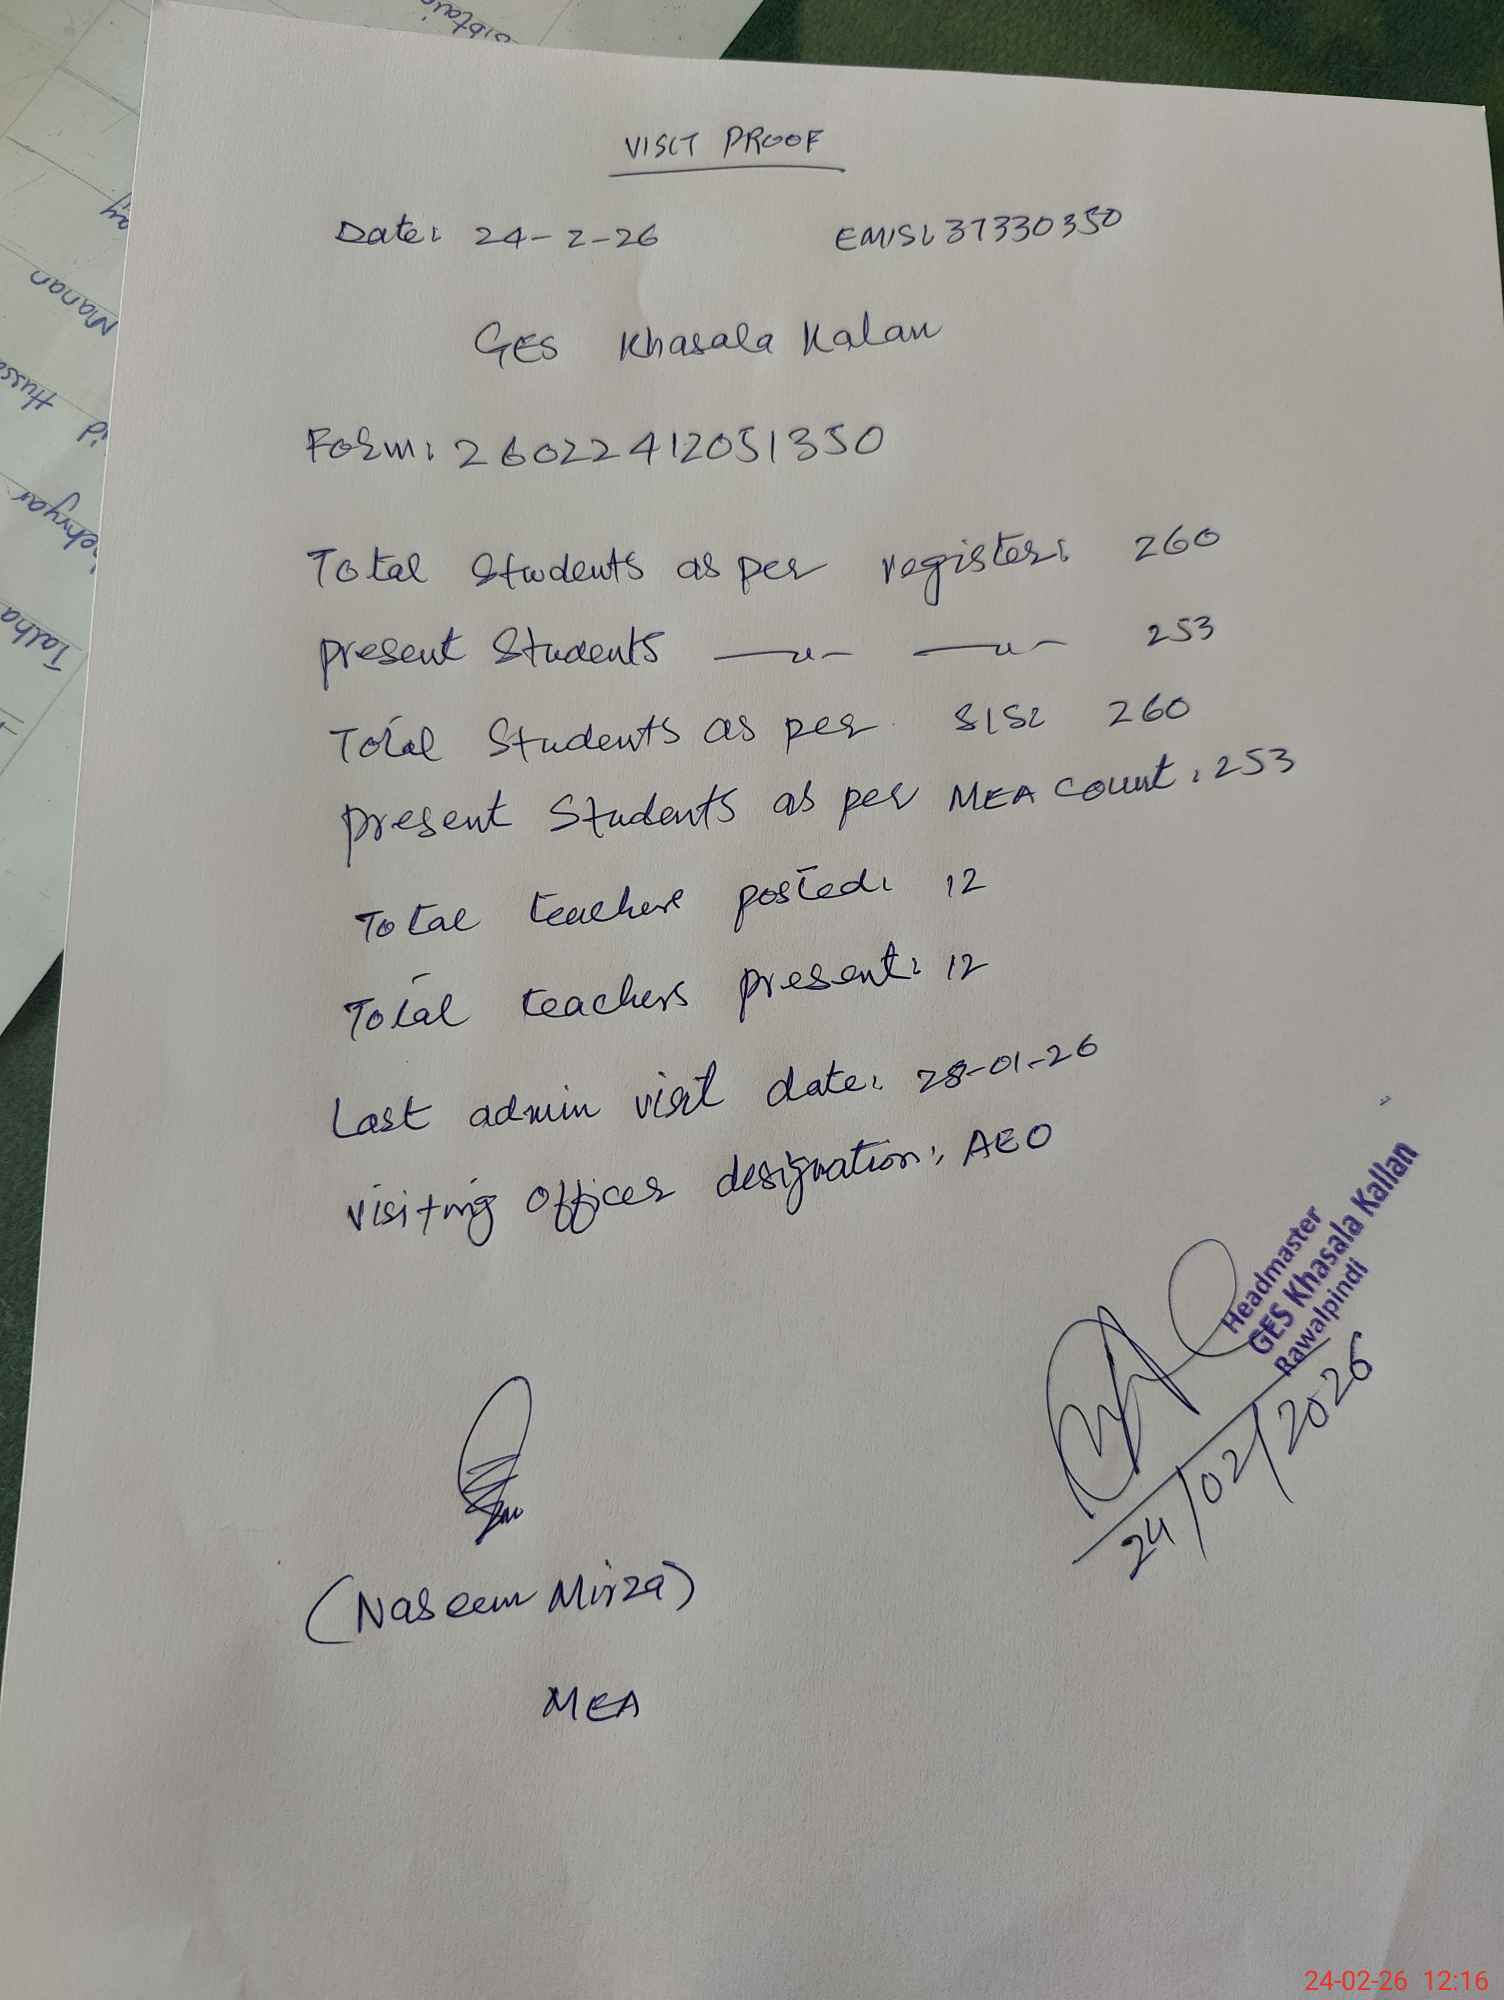 VISIT PROOF
Date: 24-2-26 EMIS: 37330350
GES Khasala Kalan
Form: 26022412051350
Total Students as per register: 260
present Students —〃— —〃— 253
Total Students as per SIS: 260
present Students as per MEA count: 253
Total teachers posted: 12
Total teachers present: 12
Last admin visit date: 28-01-26
visiting officer designation: AEO
Headmaster
GES Khasala Kallan
Rawalpindi
24/02/2026
(Naseem Mirza)
MEA
Manan
Talha
24-02-26 12:16